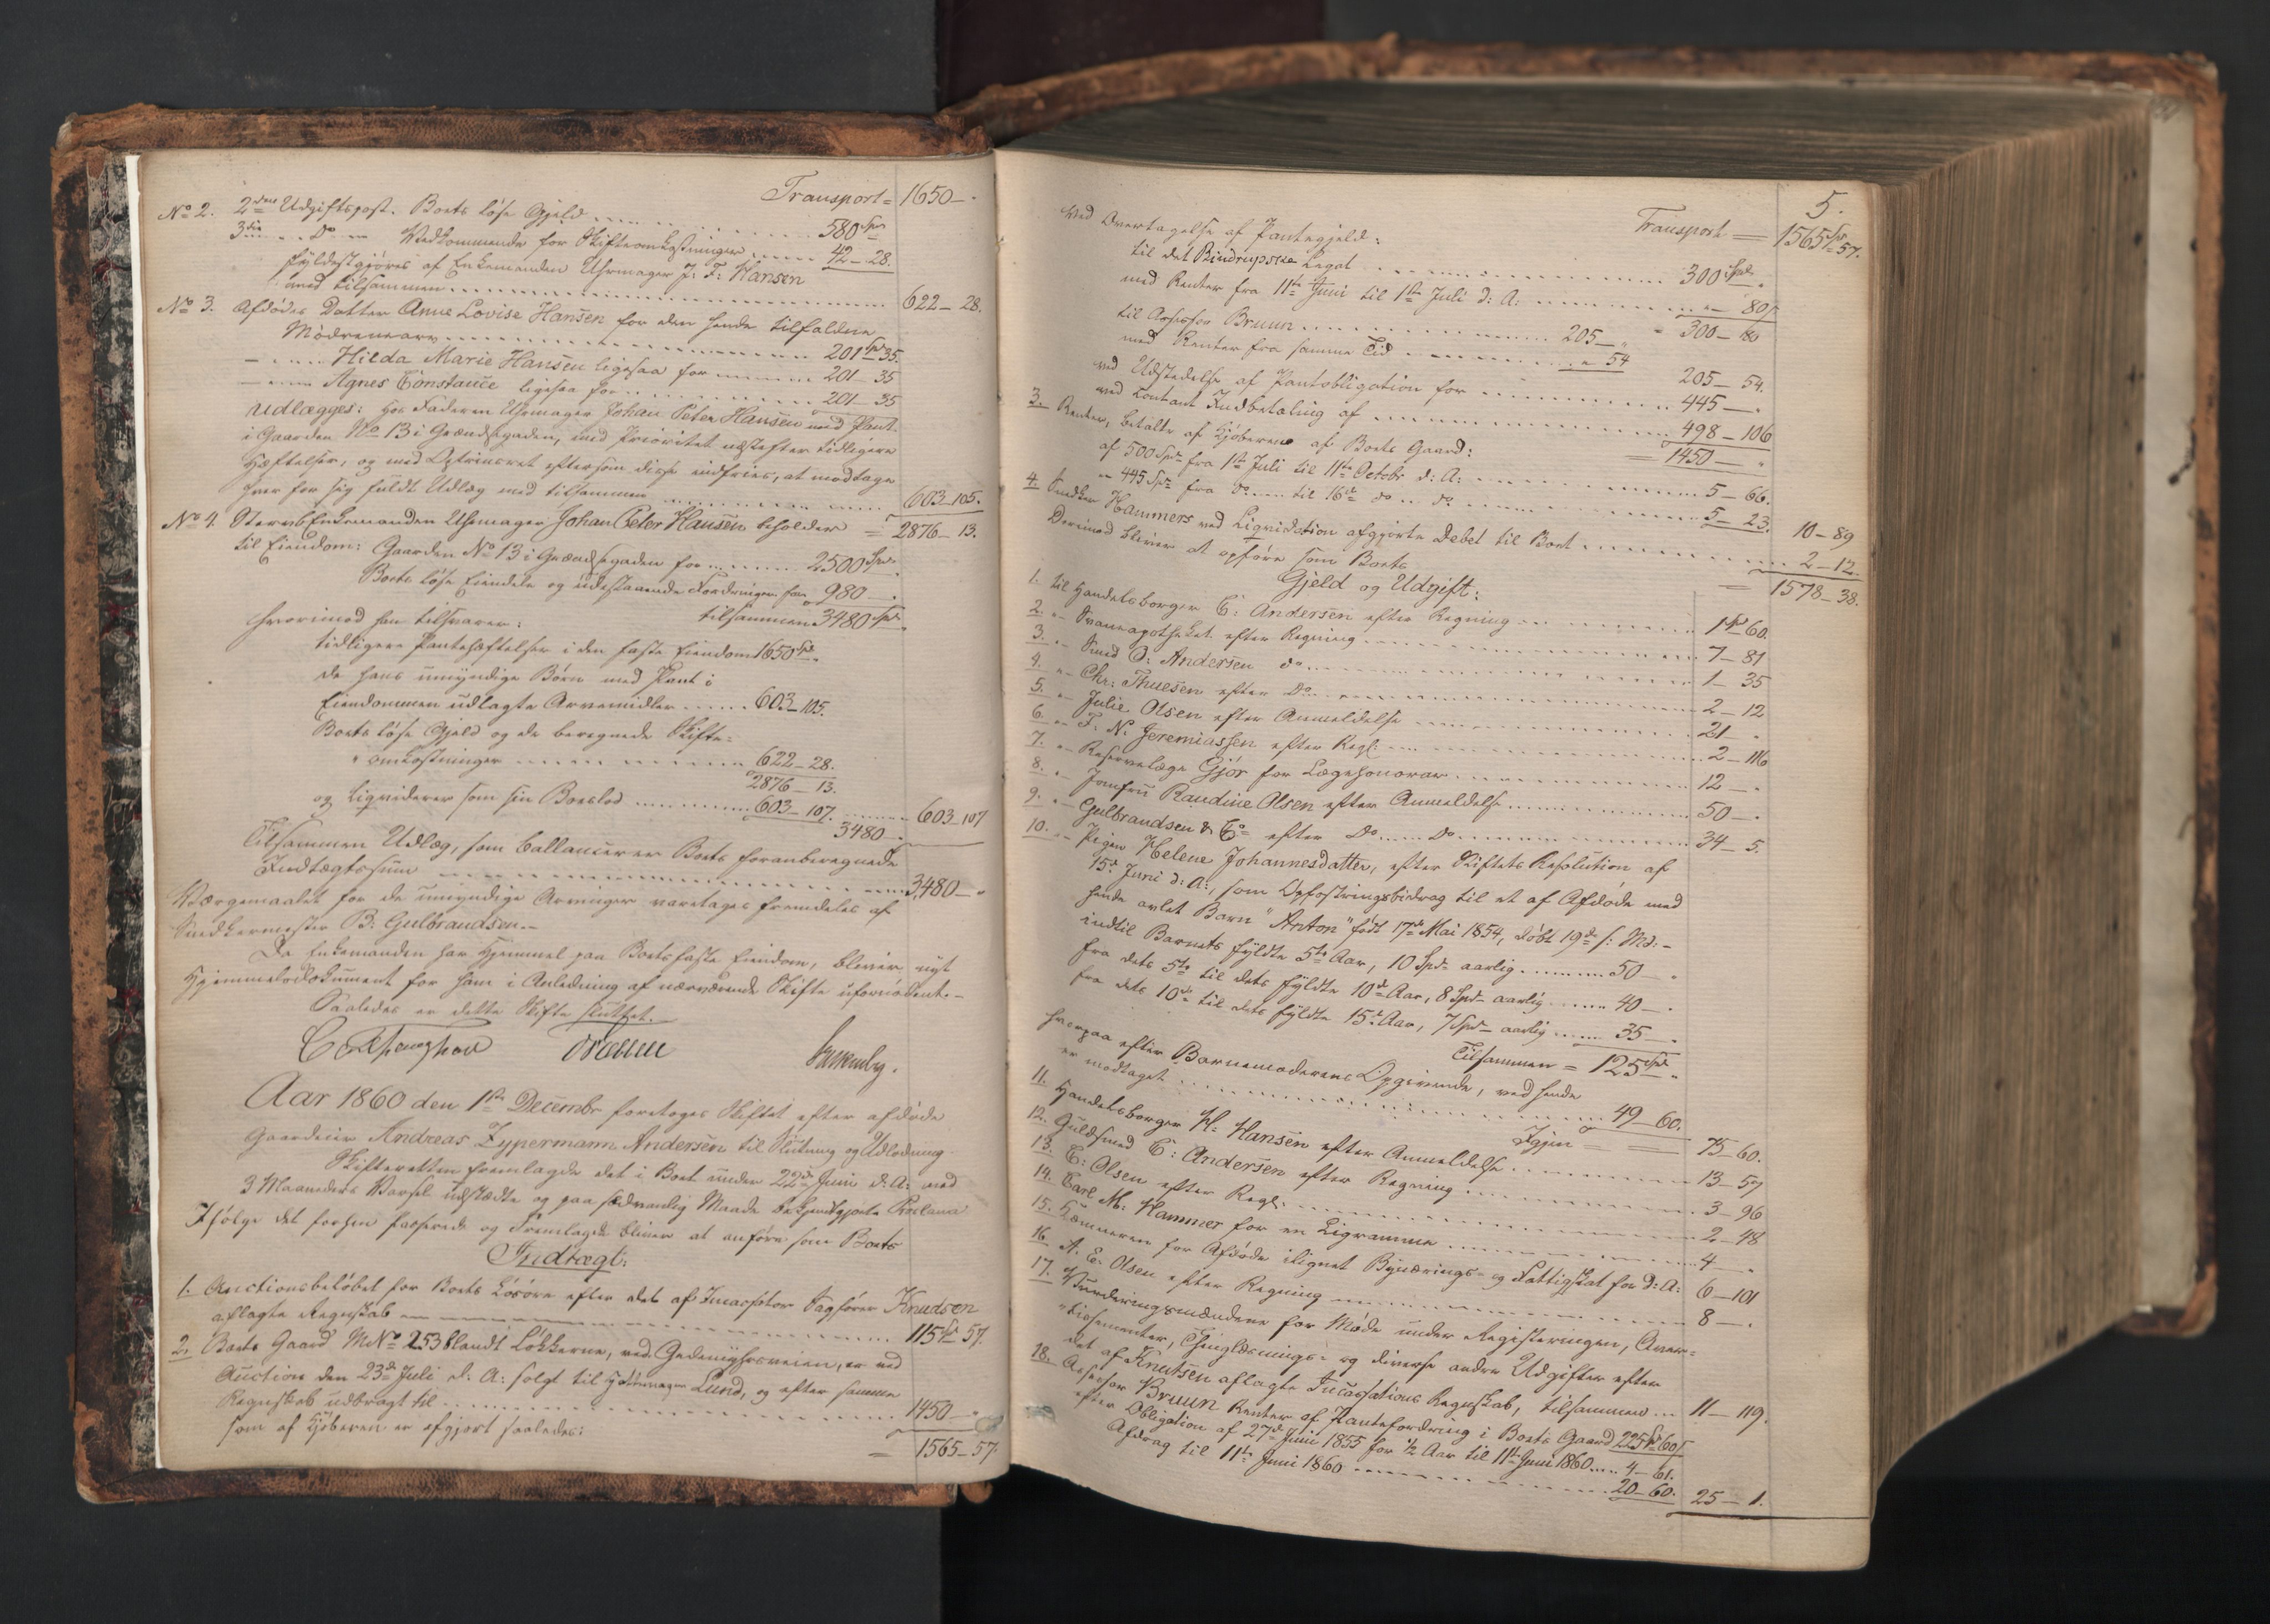 Transport = 1650 — "
No 2. 2den Udgiftspost. Boets løse Gjeld ........ 580 Spd
3die " Do " Vedkommende for Skifteomkostninger ...... 42 — 28.
fyldestgjøres af Enkemanden Uhrmager J: P: Hansen
med tilsammen ........ 622 — 28.
No 3. Afdødes Datter Anne Lovise Hansen for den hende tilfaldne
Mødrenearv ........ 201 Spd 35.
— " — Hilda Marie Hansen ligesaa for ........ 201 — 35
— " — Agnes Constance ligesaa for ........ 201 — 35
Udlægges: hos Faderen Uhrmager Johan Peter Hansen med Pant
i Gaarden No 13 i Grændsegaden, med Prioritet næstefter tidligere
Hæftelser, og med Optrinsret eftersom disse indfries, at modtage
hver for sig fuldt Udlæg med tilsammen ........ 603 — 105.
No 4. Stervboenkemanden Uhrmager Johan Peter Hansen beholder = 2876 — 13.
til Eiendom: Gaarden No 13 i Grændsegaden for ........ 2500 Spd
Boets løse Eiendele og udestaaende Fordringer for 980 — "
tilsammen 3480 Spd
hvorimod han tilsvarer:
tidligere Pantehæftelser i den faste Eiendom 1650 Spd
de hans umyndige Børn med Pant i
Eiendommen udlagte Arvemidler ...... 603 — 105.
Boets løse Gjeld og de beregnede Skifte-
omkostninger ........ 622 — 28.
2876 — 13.
og liqviderer som sin Boeslod ........ 603 — 107. ........ 603 — 107
3480 — "
Tilsammen Udlæg, som ballancerer Boets foranberegnede
Indtægtssum ........ 3480 — "
Værgemaalet for de umyndige Arvinger varetages fremdeles af
Snedkermester B: Gulbrandsen. —
Da Enkemanden har Hjemmel paa Boets faste Eiendom, bliver nyt
Hjemmelsdokument for ham i Anledning af nærværende Skifte ufornødent. —
Saaledes er dette Skifte sluttet.
Aar 1860 den 1ste Decembr foretoges Skiftet efter afdøde
Gaardeier Andreas Zypermann Andersen til Slutning og Udlodning.
Skifteretten fremlagde det i Boet under 22de Juni d: A: med
3 Maaneders Varsel udstædte og paa sædvanlig Maade bekjendtgjorte Proclama
Ifølge det forhen passerede og Fremlagde bliver at anføre som Boets
Indtægt:
1. Auctionsbeløbet for Boets Løsøre efter det af Incassator Sagfører Knudsen
aflagte Regnskab ........ 115 Spd 57
2. Boets Gaard M No 253 blandt Løkkerne, ved Gedemyhrsveien, er ved
Auction den 23de Juli d: A: solgt til Hattemager Lund, og efter samme
Regnskab udbragt til ........ 1450 — "
som af Kjøberen er afgjort saaledes:
= 1565 — 57
5.
Transport = 1565 Spd 57.
Ved Overtagelse af Pantegjeld:
til det Rindrupske Legat ........ 300 Spd "
med Renter fra 11te Juni til 1ste Juli d: A: ........ " — 80
300 — 80
til Assessor Bruun ........ 205 — "
med Renter fra samme Tid ........ " 54
205 — 54.
ved Udstedelse af Pantobligation for ........ 445 — "
ved contant Indbetaling af ........ 498 — 106
= 1450 — "
3. Renter, betalte af Kjøberne af Boets Gaard:
af 500 Spd fra 1ste Juli til 11te Octobr d: A: ........ 5 — 66.
" 445 Spd fra do .... til 16de do .. do ........ 5 — 23.
10 — 89
4. Snedker Hammers ved Liqvidation afgjorte Debet til Boet ........ 2 — 12.
= 1578 — 38.
Derimod bliver at opføre som Boets
Gjeld og Udgift:
1. til Handelsborger C: Andersen efter Regning ........ 1 Spd 60.
2. " — Svaneapotheket efter Regning ........ 7 — 81
3. " — Smed O: Andersen do ........ 1 — 35
4. " — Chr: Thuesen efter Do ........ 2 — 12
5. " — Julie Olsen efter Anmeldelse ........ 21 — "
6. " — F. N. Jeremiassen efter Regl: ........ 2 — 116
7. " — Reservelæge Gjør for Lægehonorar ........ 12 — "
8. " — Jomfru Randine Olsen efter Anmeldelse ........ 50 — "
9. " — Gulbrandsen & Co efter Do ..... do ........ 34 — 5.
10. " — Pigen Helene Johannesdatter, efter Skiftets Resolution af
15de Juni d: A:, som Opfostringsbidrag til et af Afdøde med
hende avlet Barn "Anton" født 17de Mai 1854, døbt 19de s: Md: —
indtil Barnets fyldte 5te Aar, 10 Spd aarlig ........ 50 — "
fra dets 5te til dets fyldte 10de Aar, 8 Spd aarlig ...... 40 — "
fra dets 10de til dets fyldte 15de Aar, 7 Spd aarlig ...... 35 — "
Tilsammen = 125 Spd "
hvorpaa efter Barnemoderens Opgivende, ved hende
er modtaget ........ 49 — 60.
Igjen = 75 — 60.
11. Handelsborger H: Hansen efter Anmeldelse ........ 13 — 57
12. Guldsmed C: Andersen efter Regning ........ 3 — 96
13. C: Olsen efter Regl: ........ 2 — 48
14. Carl M: Hammer for en Ligramme ........ 4 — "
15. Kæmneren for Afdøde ilignet Bynærings- og Fattigskat for d: A: 6 — 101
16. A. E. Olsen efter Regning ........ 8 — "
17. Vurderingsmændene for Møde under Registeringen, Aver-
tissementer, Thinglæsnings- og diverse andre Udgifter efter
det af Knutsen aflagte Incassations Regnskab, tilsammen ... 11 — 119.
18. Assessor Bruun Renter af Pantefordring i Boets Gaard 225 Spd 60
efter Obligation af 27de Juni 1855 for 1/2 Aar til 11te Juni 1860 ..... 4 — 61.
Afdrag til 11te Juni 1860 ........ 20 — 60.
25 — 1.